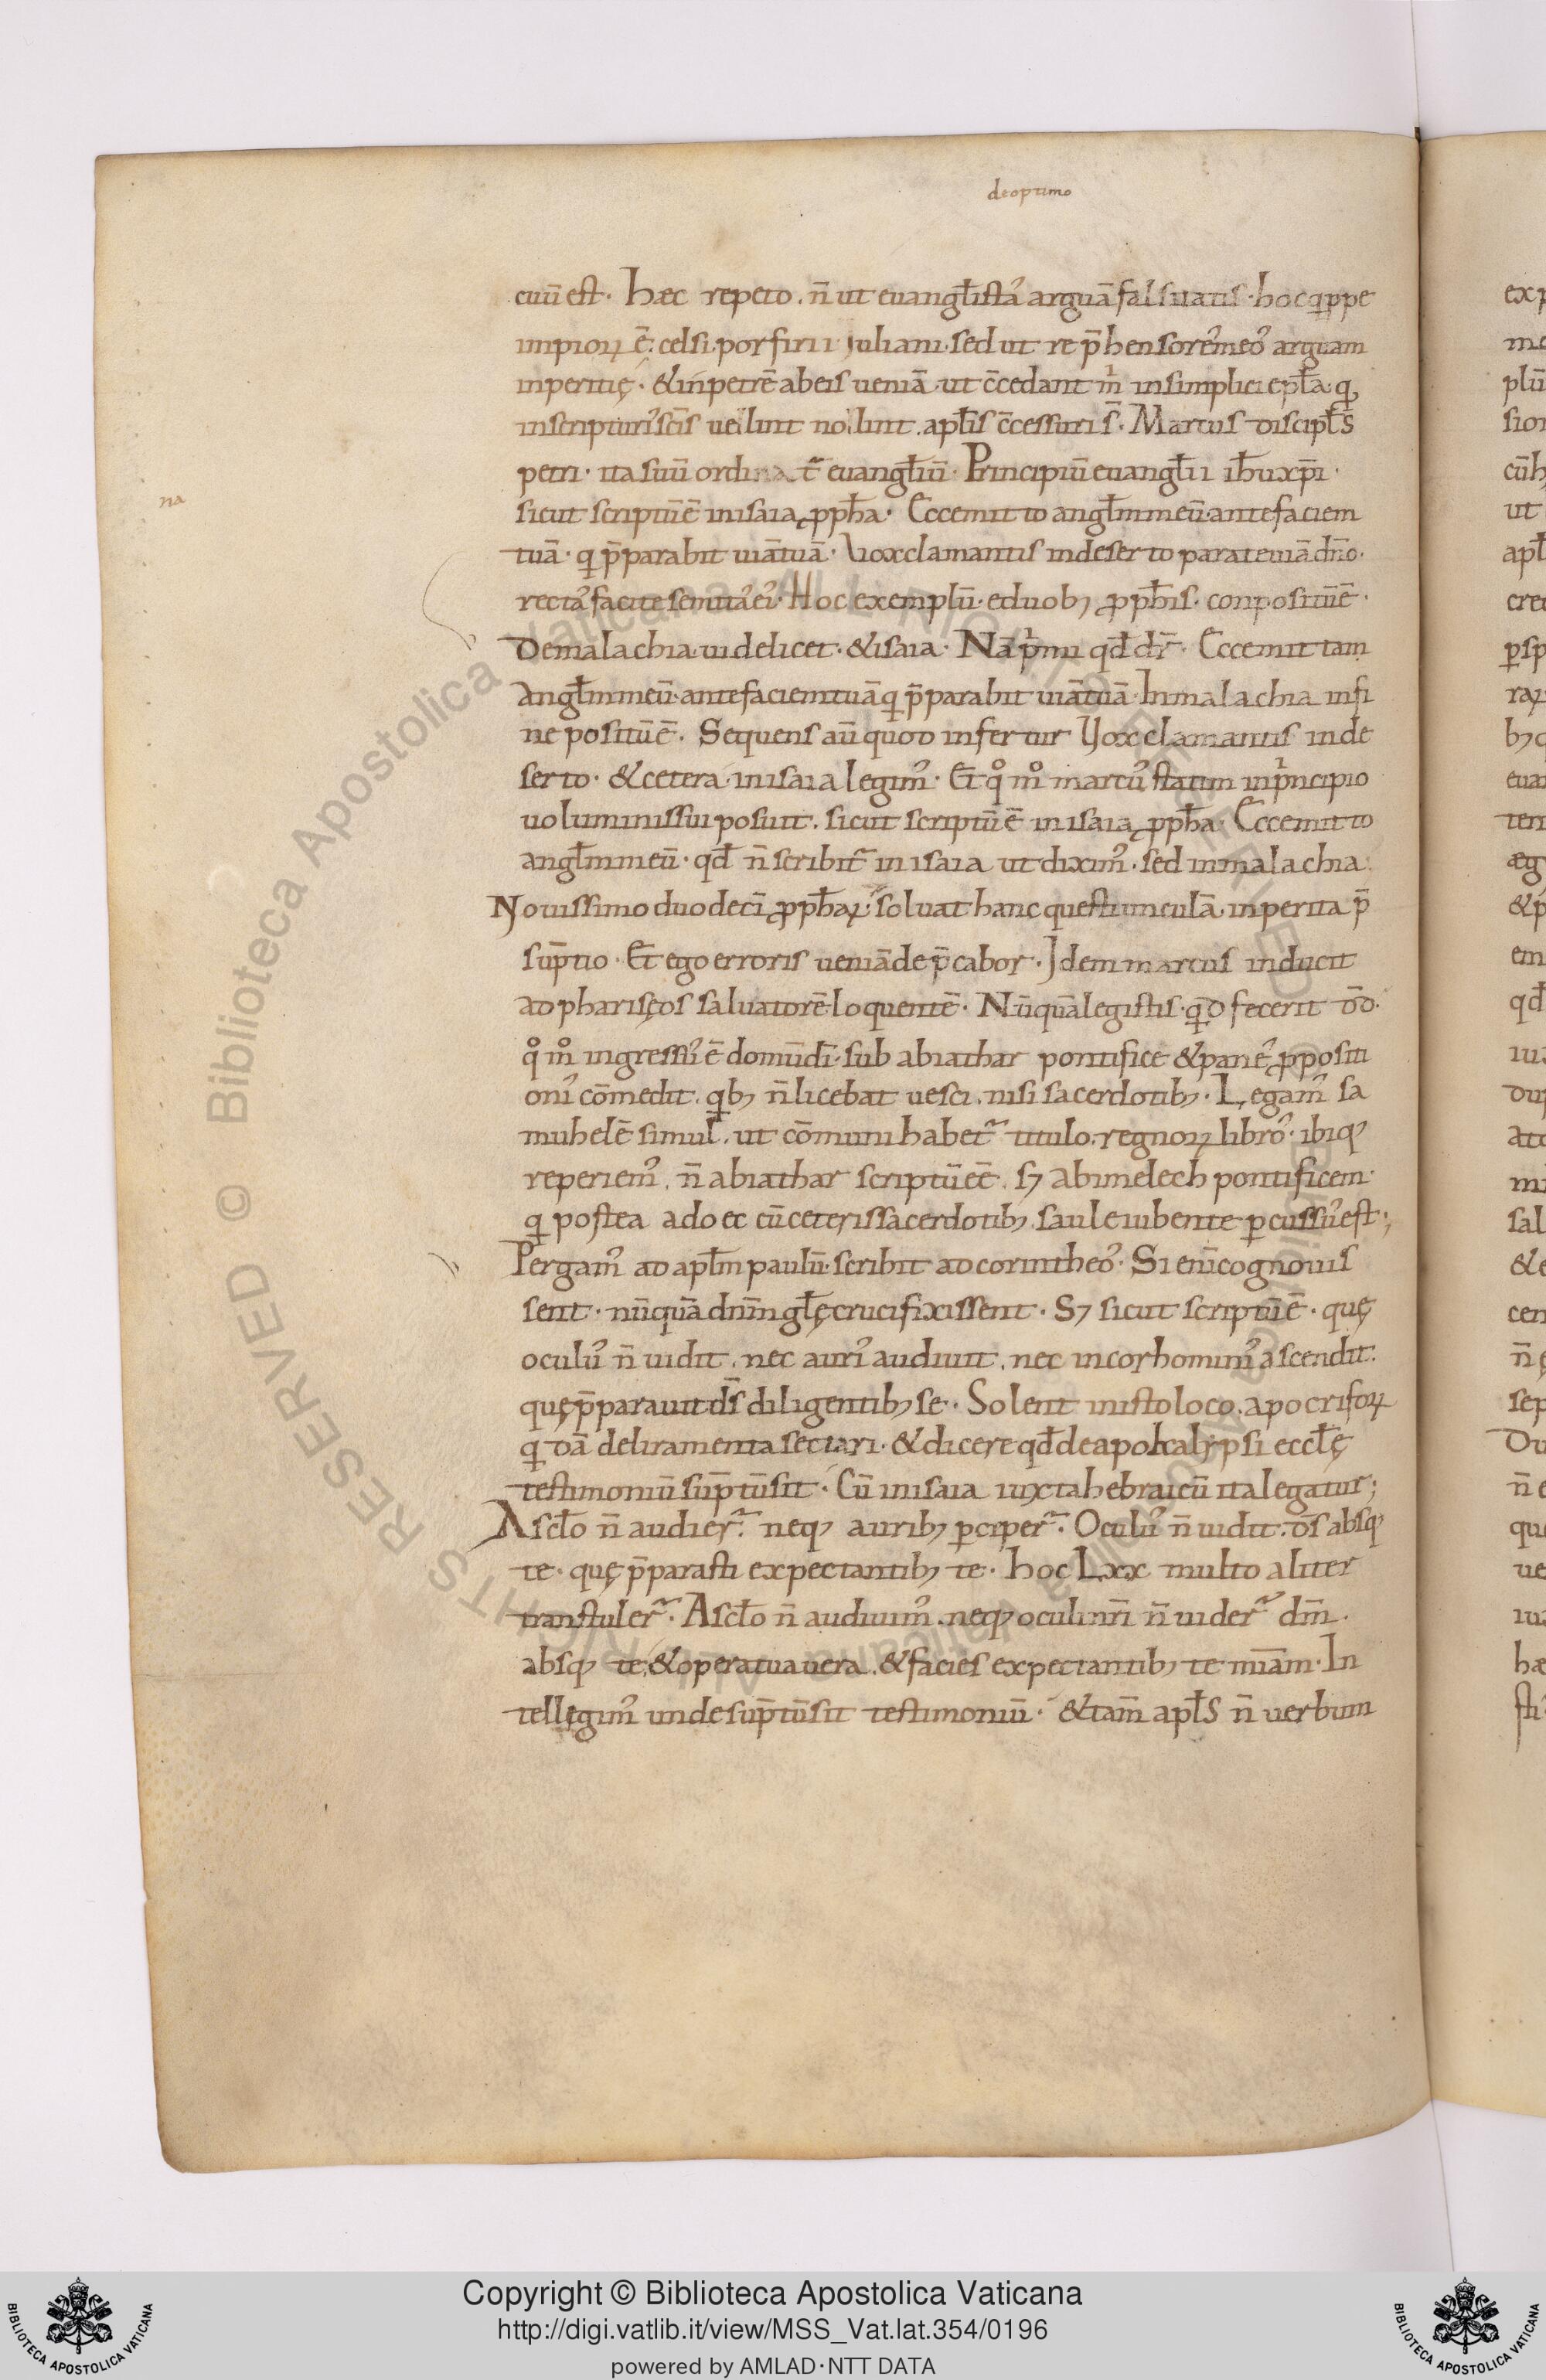 deoptimo
cuū est. Hæc repeto. n̄ ut euangl̄istā arguā falsitatis. hoc q̄ppe
impioꝝ ē. celsi. porfirii iuliani. sed ut rep̄hensores meos arguam
inperitię. & inpetrē ab eis ueniā. ut c̄cedant m̄ in simplici epl̄a. q
in scripturis sc̄is uelint nolint. apl̄is c̄cessuri s̄. Marcus discipl̄s
petri. ita suū ordinat̄ euangl̄iū. Principiū euangl̄ii ih̄u xp̄i.
na
sicut scriptū ē in isaia ꝓph̄a. Ecce mitto angl̄m meū ante faciem
tuā. q p̄parabit uiā tuā. Uox clamantis in deserto parate uiā dn̄o.
rectas facite semitas ei᾽. Hoc exemplū. e duob; ꝓph̄is. conpositū ē.
De malachia uidelicet. & isaia. Nā p̄mū qd̄ dr̄. Ecce mittam
angl̄m meū. ante faciem tuā q p̄parabit uiā tuā. In malachia in fi
ne positū ē. Sequens aū quod infertur Uox clamantis in de
serto. & cetera. in isaia legim᾽. Et qͦ mͦ marcus statim in p̄ncipio
uoluminis sui posuit. sicut scriptū ē in isaia ꝓph̄a. Ecce mitto
angl̄m meū. qd̄ n̄ scribit̄ in isaia ut dixim᾽. sed in malachia.
Nouissimo duodecī ꝓph̄aꝝ. soluat hanc questiunculā. inperita p̄
sūptio. Et ego erroris ueniā dep̄cabor. Idem marcus inducit
ad pharisęos saluatorē loquentē. Nūquā legistis. qd̄ fecerit dd̄.
qͦ mͦ ingressus ē domū dī. sub abiathar pontifice & panes ꝓpositi
onis cōmedit. qb; n̄ licebat uesci. nisi sacerdotib;. Legam᾽ sa
muhelē simul. ut cōmuni habet̄ titulo. regnoꝝ libros. ibiq;
reperiem᾽. n̄ abiathar scriptū eē. s; abimelech pontificem.
q postea a doec cū ceteris sacerdotib; saule iubente ꝑcussus est;
Pergam᾽ ad apl̄m paulū. scribit ad corintheos. Si enī cognouis
sent. nūquā dnm̄ gl̄ę crucifixissent. S; sicut scriptū ē. quę
oculus n̄ uidit. nec auris audiuit. nec in cor hominis ascendit.
quę p̄parauit ds̄ diligentib; se. Solent in isto loco. apocrifoꝝ
qdā deliramenta sectari. & dicere qd̄ de apokalypsi eccl̄ę
testimoniū sūptū sit. Cū in isaia iuxta hebraicū ita legatur;
A scl̄o n̄ audier̄. neq; aurib; ꝑciper̄. Oculus n̄ uidit. ds̄ absq;
te. quę p̄parasti expectantib; te. hoc Lxx multo aliter
transtuler̄. A scl̄o n̄ audiuim᾽. neq; oculi nr̄i n̄ uider̄ dm̄.
absq; te. & opera tua uera. & facies expectantib; te miām. In
tellęgim᾽ unde sūptū sit testimoniū. & tam̄ apl̄s n̄ uerbum
Copyright © Biblioteca Apostolica Vaticana
http://digi.vatlib.it/view/MSS_Vat.lat.354/0196
powered by AMLAD·NTT DATA
BIBLIOTECA APOSTOLICA VATICANA
BIBLIOTECA APOSTOLICA VATICANA